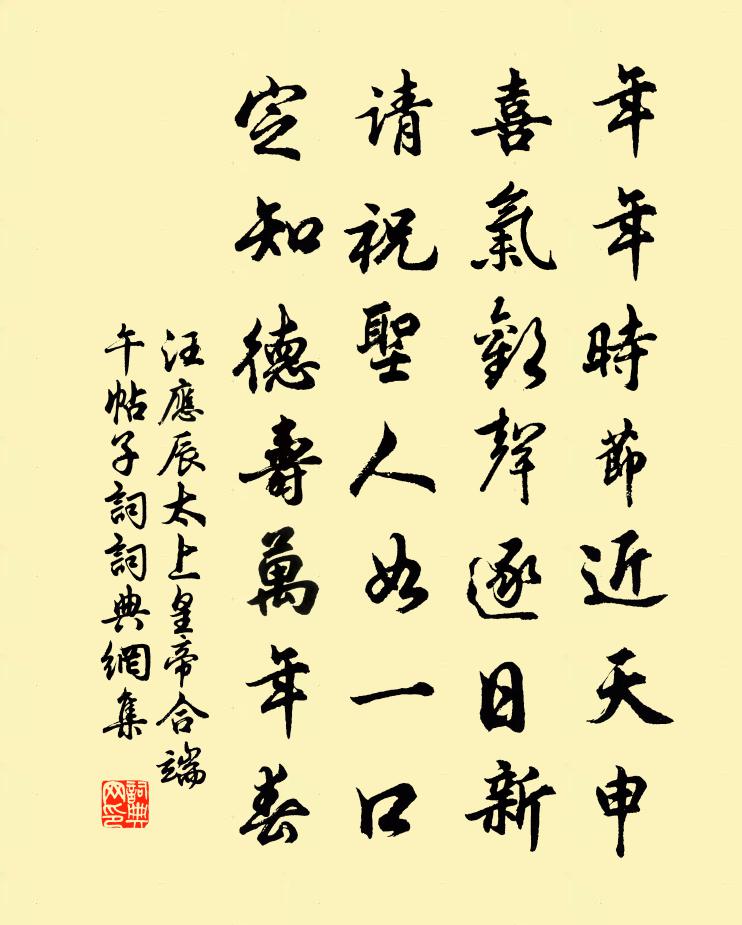 年年時節近天申
喜氣歡聲逐日新
请祝聖人如一口
定知德壽萬年春
汪應辰太上皇帝合端
午帖子詞詞典網集
詞典
网印